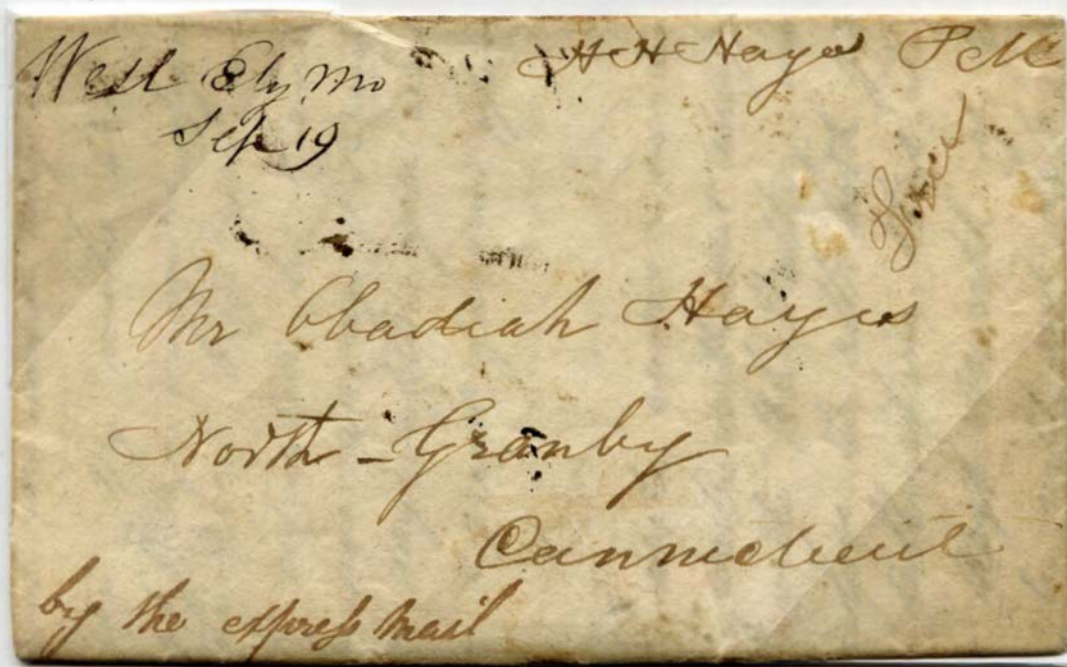 West Ely Mo
Sep 19
H H Hayes P M
Free
Mr Obadiah Hayes
North-Granby
Connecticut
by the express mail